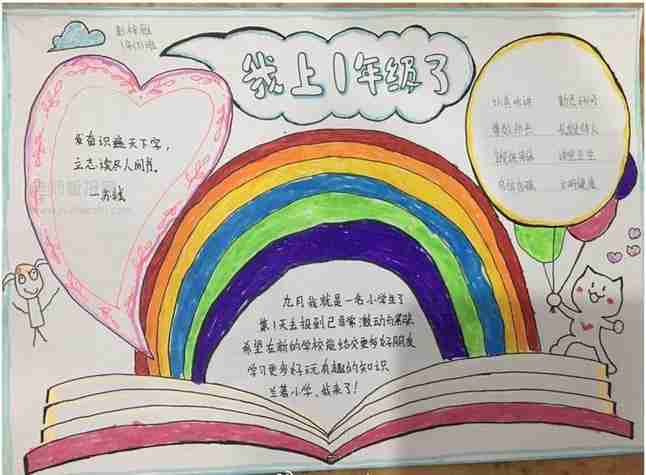 1年(1)班
我上1年级了
发奋识遍天下字,
立志读尽人间书。
—苏轼
认真听讲 勤思好问
尊敬师长 礼貌待人
讲究卫生
自信自强 文明健康
九月我就是一名小学生了
第1天去报到已非常激动与紧张
希望在新的学校能结交更多好朋友
学习更多好玩有趣的知识
兰著小学,我来了!